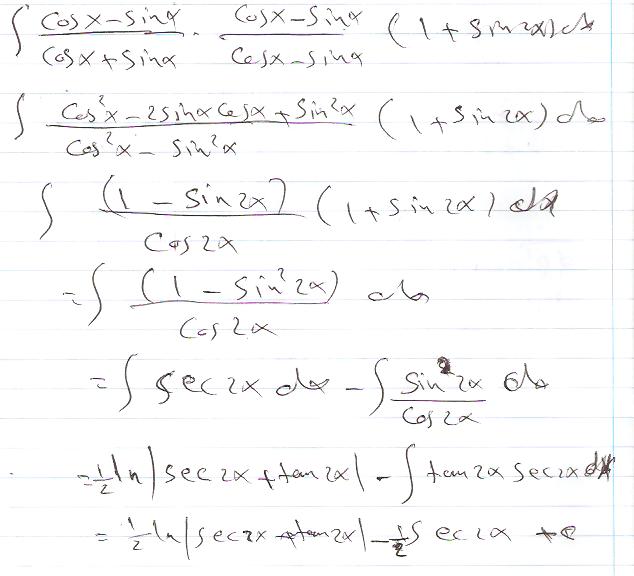 ∫ (cos x − sin x)/(cos x + sin x) · (cos x − sin x)/(cos x − sin x) (1 + sin 2x) dx
∫ (cos²x − 2 sin x cos x + sin²x)/(cos²x − sin²x) (1 + sin 2x) dx
∫ (1 − sin 2x)/cos 2x (1 + sin 2x) dx
= ∫ (1 − sin²2x)/cos 2x dx
= ∫ sec 2x dx − ∫ sin²2x/cos 2x dx
= ½ ln |sec 2x + tan 2x| − ∫ tan 2x sec 2x dx
= ½ ln |sec 2x + tan 2x| − ½ sec 2x + c